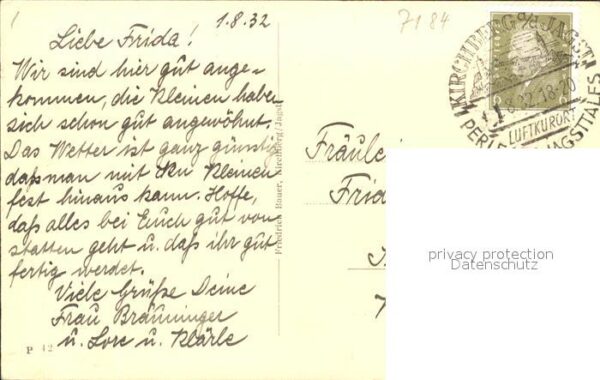 1.8.32
7184
Liebe Frida!
Wir sind hier gut ange-
kommen, die Kleinen haben
sich schon gut angewöhnt.
Das Wetter ist ganz günstig
daß man mit den Kleinen
fest hinaus kann. Hoffe,
daß alles bei Euch gut von-
statten geht u. daß ihr gut
fertig werdet.
Viele Grüße Deine
Frau Bräuninger
u. Lore u. Klärle
P 42
Friedrich Bauer, Kirchberg/Jagst
KIRCHBERG a/d JAGST
1.8.32.18-20
LUFTKURORT
PERLE JAGSTTALES
Fräulei
Frid
privacy protection
Datenschutz